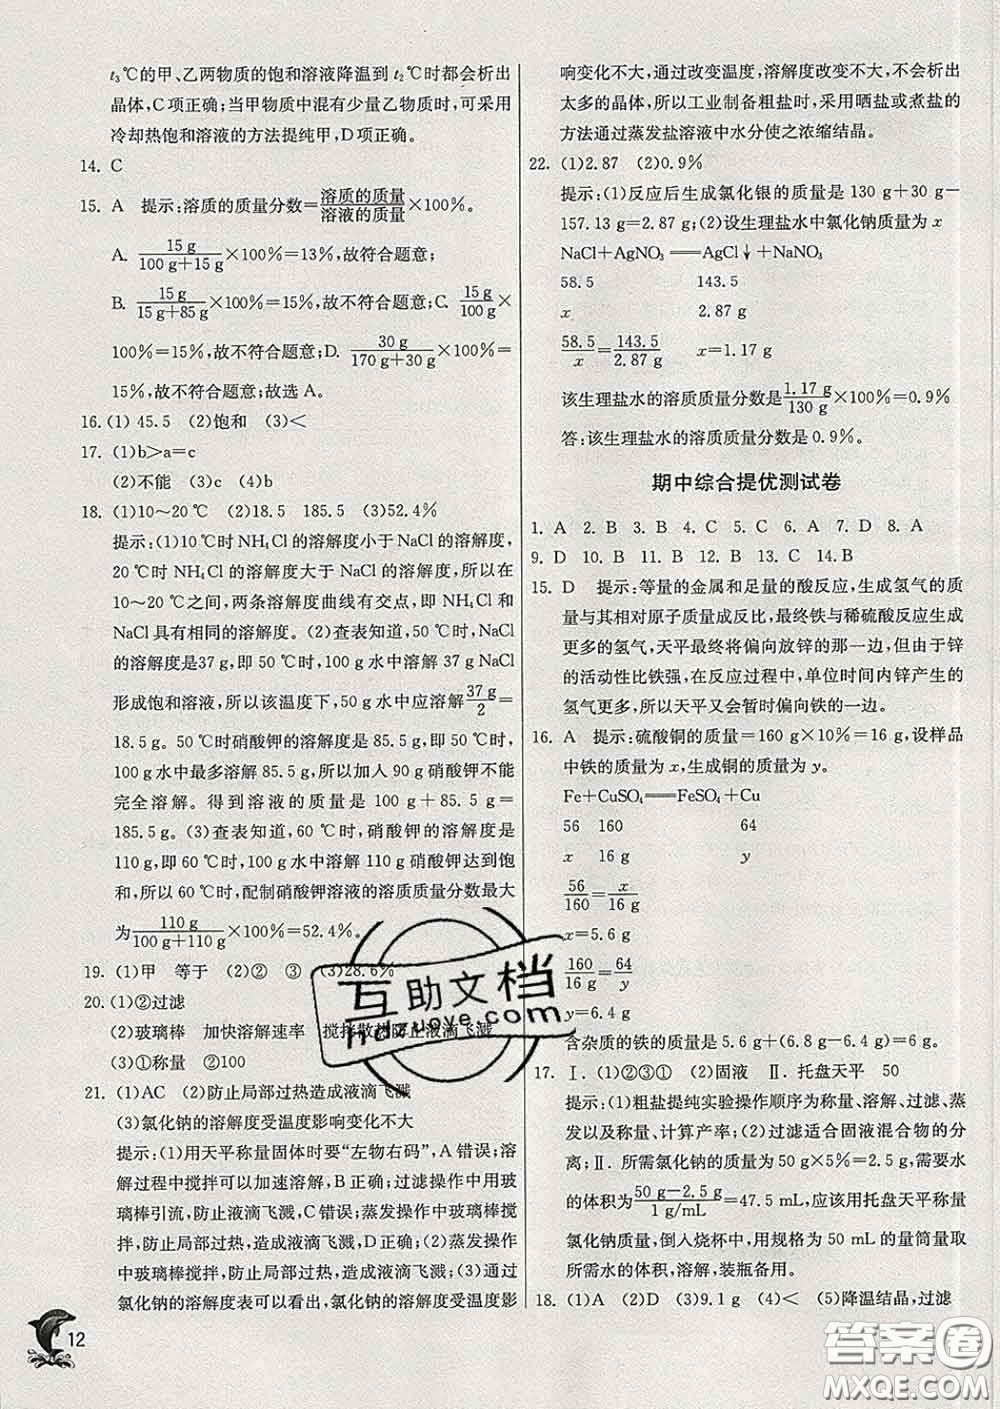 t₃℃的甲、乙两物质的饱和溶液降温到 t₂℃时都会析出
晶体,C 项正确;当甲物质中混有少量乙物质时,可采用
冷却热饱和溶液的方法提纯甲,D 项正确。
14. C
15. A 提示:溶质的质量分数=溶质的质量/溶液的质量×100%。
A. 15 g/(100 g+15 g)×100%=13%,故符合题意;
B. 15 g/(15 g+85 g)×100%=15%,故不符合题意;C. 15 g/100 g×
100%=15%,故不符合题意;D. 30 g/(170 g+30 g)×100%=
15%,故不符合题意;故选 A。
16. (1) 45.5 (2)饱和 (3)<
17. (1)b>a=c
(2)不能 (3)c (4)b
18. (1)10~20 ℃ (2)18.5 185.5 (3)52.4%
提示:(1)10 ℃时 NH₄Cl 的溶解度小于 NaCl 的溶解度,
20 ℃时 NH₄Cl 的溶解度大于 NaCl 的溶解度,所以在
10~20 ℃之间,两条溶解度曲线有交点,即 NH₄Cl 和
NaCl 具有相同的溶解度。(2)查表知道,50 ℃时,NaCl
的溶解度是37 g,即 50 ℃时,100 g 水中溶解 37 g NaCl
形成饱和溶液,所以该温度下,50 g 水中应溶解37 g/2=
18.5 g。50 ℃时硝酸钾的溶解度是 85.5 g,即 100 g
水中最多溶解 85.5 g,所以加入 90 g 硝酸钾不能
完全溶解。得到溶液的质量是 100 g + 85.5 g =
185.5 g。(3)查表知道,60 ℃时,硝酸钾的溶解度是
110 g,即 60 ℃时,100 g 水中溶解 110 g 硝酸钾达到饱
和,所以 60 ℃时,配制硝酸钾溶液的溶质质量分数最大
为110 g/(100 g+110 g)×100%=52.4%。
19. (1)甲 等于 (2)② ③ (3)28.6%
20. (1)②过滤
(2)玻璃棒 加快溶解速率 搅拌散热防止液滴飞溅
(3)①称量 ②100
21. (1)AC (2)防止局部过热造成液滴飞溅
(3)氯化钠的溶解度受温度影响变化不大
提示:(1)用天平称量固体时要“左物右码”,A 错误;溶
解过程中搅拌可以加速溶解,B 正确;过滤操作中用玻
璃棒引流,防止液滴飞溅,C 错误;蒸发操作中玻璃棒搅
拌,防止局部过热,造成液滴飞溅,D 正确;(2)蒸发操作
中玻璃棒搅拌,防止局部过热,造成液滴飞溅;(3)通过
氯化钠的溶解度表可以看出,氯化钠的溶解度受温度影
12
响变化不大,通过改变温度,溶解度改变不大,不会析出
太多的晶体,所以工业制备粗盐时,采用晒盐或煮盐的
方法通过蒸发盐溶液中水分使之浓缩结晶。
22. (1)2.87 (2)0.9%
提示:(1)反应后生成氯化银的质量是 130 g+30 g-
157.13 g=2.87 g;(2)设生理盐水中氯化钠质量为 x
NaCl+AgNO₃══AgCl↓+NaNO₃
58.5 143.5
x 2.87 g
58.5/x=143.5/2.87 g x=1.17 g
该生理盐水的溶质质量分数是1.17 g/130 g×100%=0.9%
答:该生理盐水的溶质质量分数是 0.9%。
期中综合提优测试卷
1. A 2. B 3. B 4. C 5. C 6. A 7. D 8. A
9. D 10. B 11. B 12. B 13. C 14. B
15. D 提示:等量的金属和足量的酸反应,生成氢气的质
量与其相对原子质量成反比,最终铁与稀硫酸反应生成
更多的氢气,天平最终将偏向放锌的那一边。但由于锌
的活动性比铁强,在反应过程中,单位时间内锌产生的
氢气更多,所以天平又会暂时偏向铁的一边。
16. A 提示:硫酸铜的质量=160 g×10%=16 g,设样品
中铁的质量为 x,生成铜的质量为 y。
Fe+CuSO₄══FeSO₄+Cu
56 160 64
x 16 g y
56/160=x/16 g
x=5.6 g
160/16 g=64/y
y=6.4 g
含杂质的铁的质量是 5.6 g+(6.8 g-6.4 g)=6 g。
17. Ⅰ. (1)①②③① (2)固液 Ⅱ. 托盘天平 50
提示:(1)粗盐提纯实验操作顺序为称量、溶解、过滤、蒸
发以及称量、计算产率;(2)过滤适合固液混合物的分
离;Ⅱ. 所需氯化钠的质量为 50 g×5%=2.5 g,需要水
的体积为(50 g-2.5 g)/(1 g/mL)=47.5 mL,应该用托盘天平称量
氯化钠质量,倒入烧杯中,用规格为 50 mL 的量筒量取
所需水的体积,溶解,装瓶备用。
18. (1)A (2)D (3)9.1 g (4)< (5)降温结晶,过滤
互助文档
hdzuowe.com
答案圈
MXQE.COM